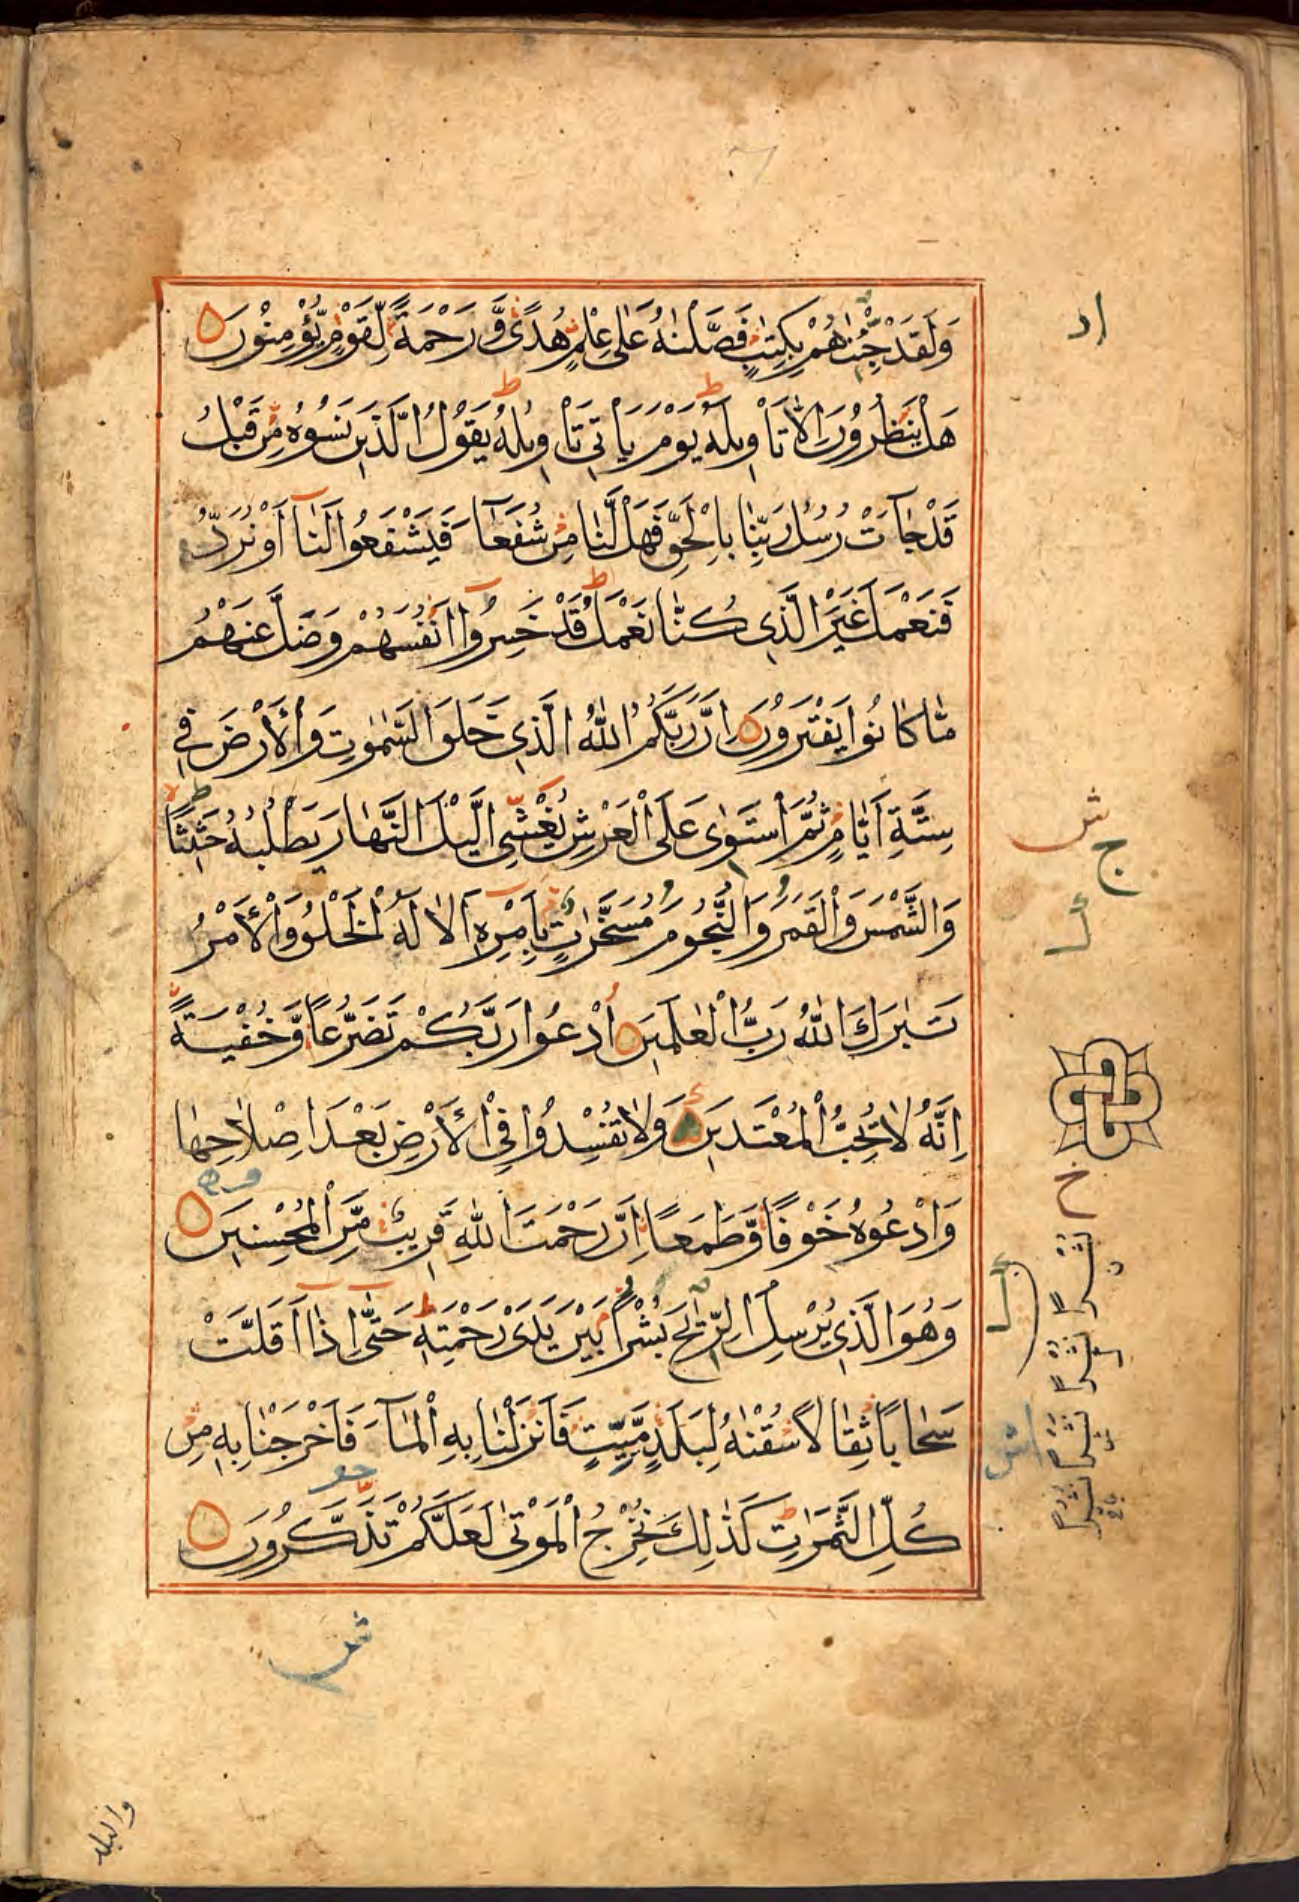 وَلَقَدْ جِئْنٰهُمْ بِكِتٰبٍ فَصَّلْنٰهُ عَلٰى عِلْمٍ هُدًى وَّرَحْمَةً لِّقَوْمٍ يُّؤْمِنُوْنَ
هَلْ يَنْظُرُوْنَ اِلَّا تَاْوِيْلَهٗ يَوْمَ يَاْتِيْ تَاْوِيْلُهٗ يَقُوْلُ الَّذِيْنَ نَسُوْهُ مِنْ قَبْلُ
قَدْ جَآءَتْ رُسُلُ رَبِّنَا بِالْحَقِّ فَهَلْ لَّنَا مِنْ شُفَعَآءَ فَيَشْفَعُوْا لَنَآ اَوْ نُرَدُّ
فَنَعْمَلَ غَيْرَ الَّذِيْ كُنَّا نَعْمَلُ قَدْ خَسِرُوْٓا اَنْفُسَهُمْ وَضَلَّ عَنْهُمْ
مَّا كَانُوْا يَفْتَرُوْنَ اِنَّ رَبَّكُمُ اللّٰهُ الَّذِيْ خَلَقَ السَّمٰوٰتِ وَالْاَرْضَ فِيْ
سِتَّةِ اَيَّامٍ ثُمَّ اسْتَوٰى عَلَى الْعَرْشِ يُغْشِى الَّيْلَ النَّهَارَ يَطْلُبُهٗ حَثِيْثًا
وَالشَّمْسَ وَالْقَمَرَ وَالنُّجُوْمَ مُسَخَّرٰتٍ بِاَمْرِهٖ اَلَا لَهُ الْخَلْقُ وَالْاَمْرُ
تَبٰرَكَ اللّٰهُ رَبُّ الْعٰلَمِيْنَ اُدْعُوْا رَبَّكُمْ تَضَرُّعًا وَّخُفْيَةً
اِنَّهٗ لَا يُحِبُّ الْمُعْتَدِيْنَ وَلَا تُفْسِدُوْا فِى الْاَرْضِ بَعْدَ اِصْلَاحِهَا
وَادْعُوْهُ خَوْفًا وَّطَمَعًا اِنَّ رَحْمَتَ اللّٰهِ قَرِيْبٌ مِّنَ الْمُحْسِنِيْنَ
وَهُوَ الَّذِيْ يُرْسِلُ الرِّيٰحَ بُشْرًا بَيْنَ يَدَيْ رَحْمَتِهٖ حَتّٰىٓ اِذَآ اَقَلَّتْ
سَحَابًا ثِقَالًا سُقْنٰهُ لِبَلَدٍ مَّيِّتٍ فَاَنْزَلْنَا بِهِ الْمَآءَ فَاَخْرَجْنَا بِهٖ مِنْ
كُلِّ الثَّمَرٰتِ كَذٰلِكَ نُخْرِجُ الْمَوْتٰى لَعَلَّكُمْ تَذَكَّرُوْنَ
ش
ج
خ
نَشْرًا
نُشْرًا
نُشُرًا
ش
والبلد